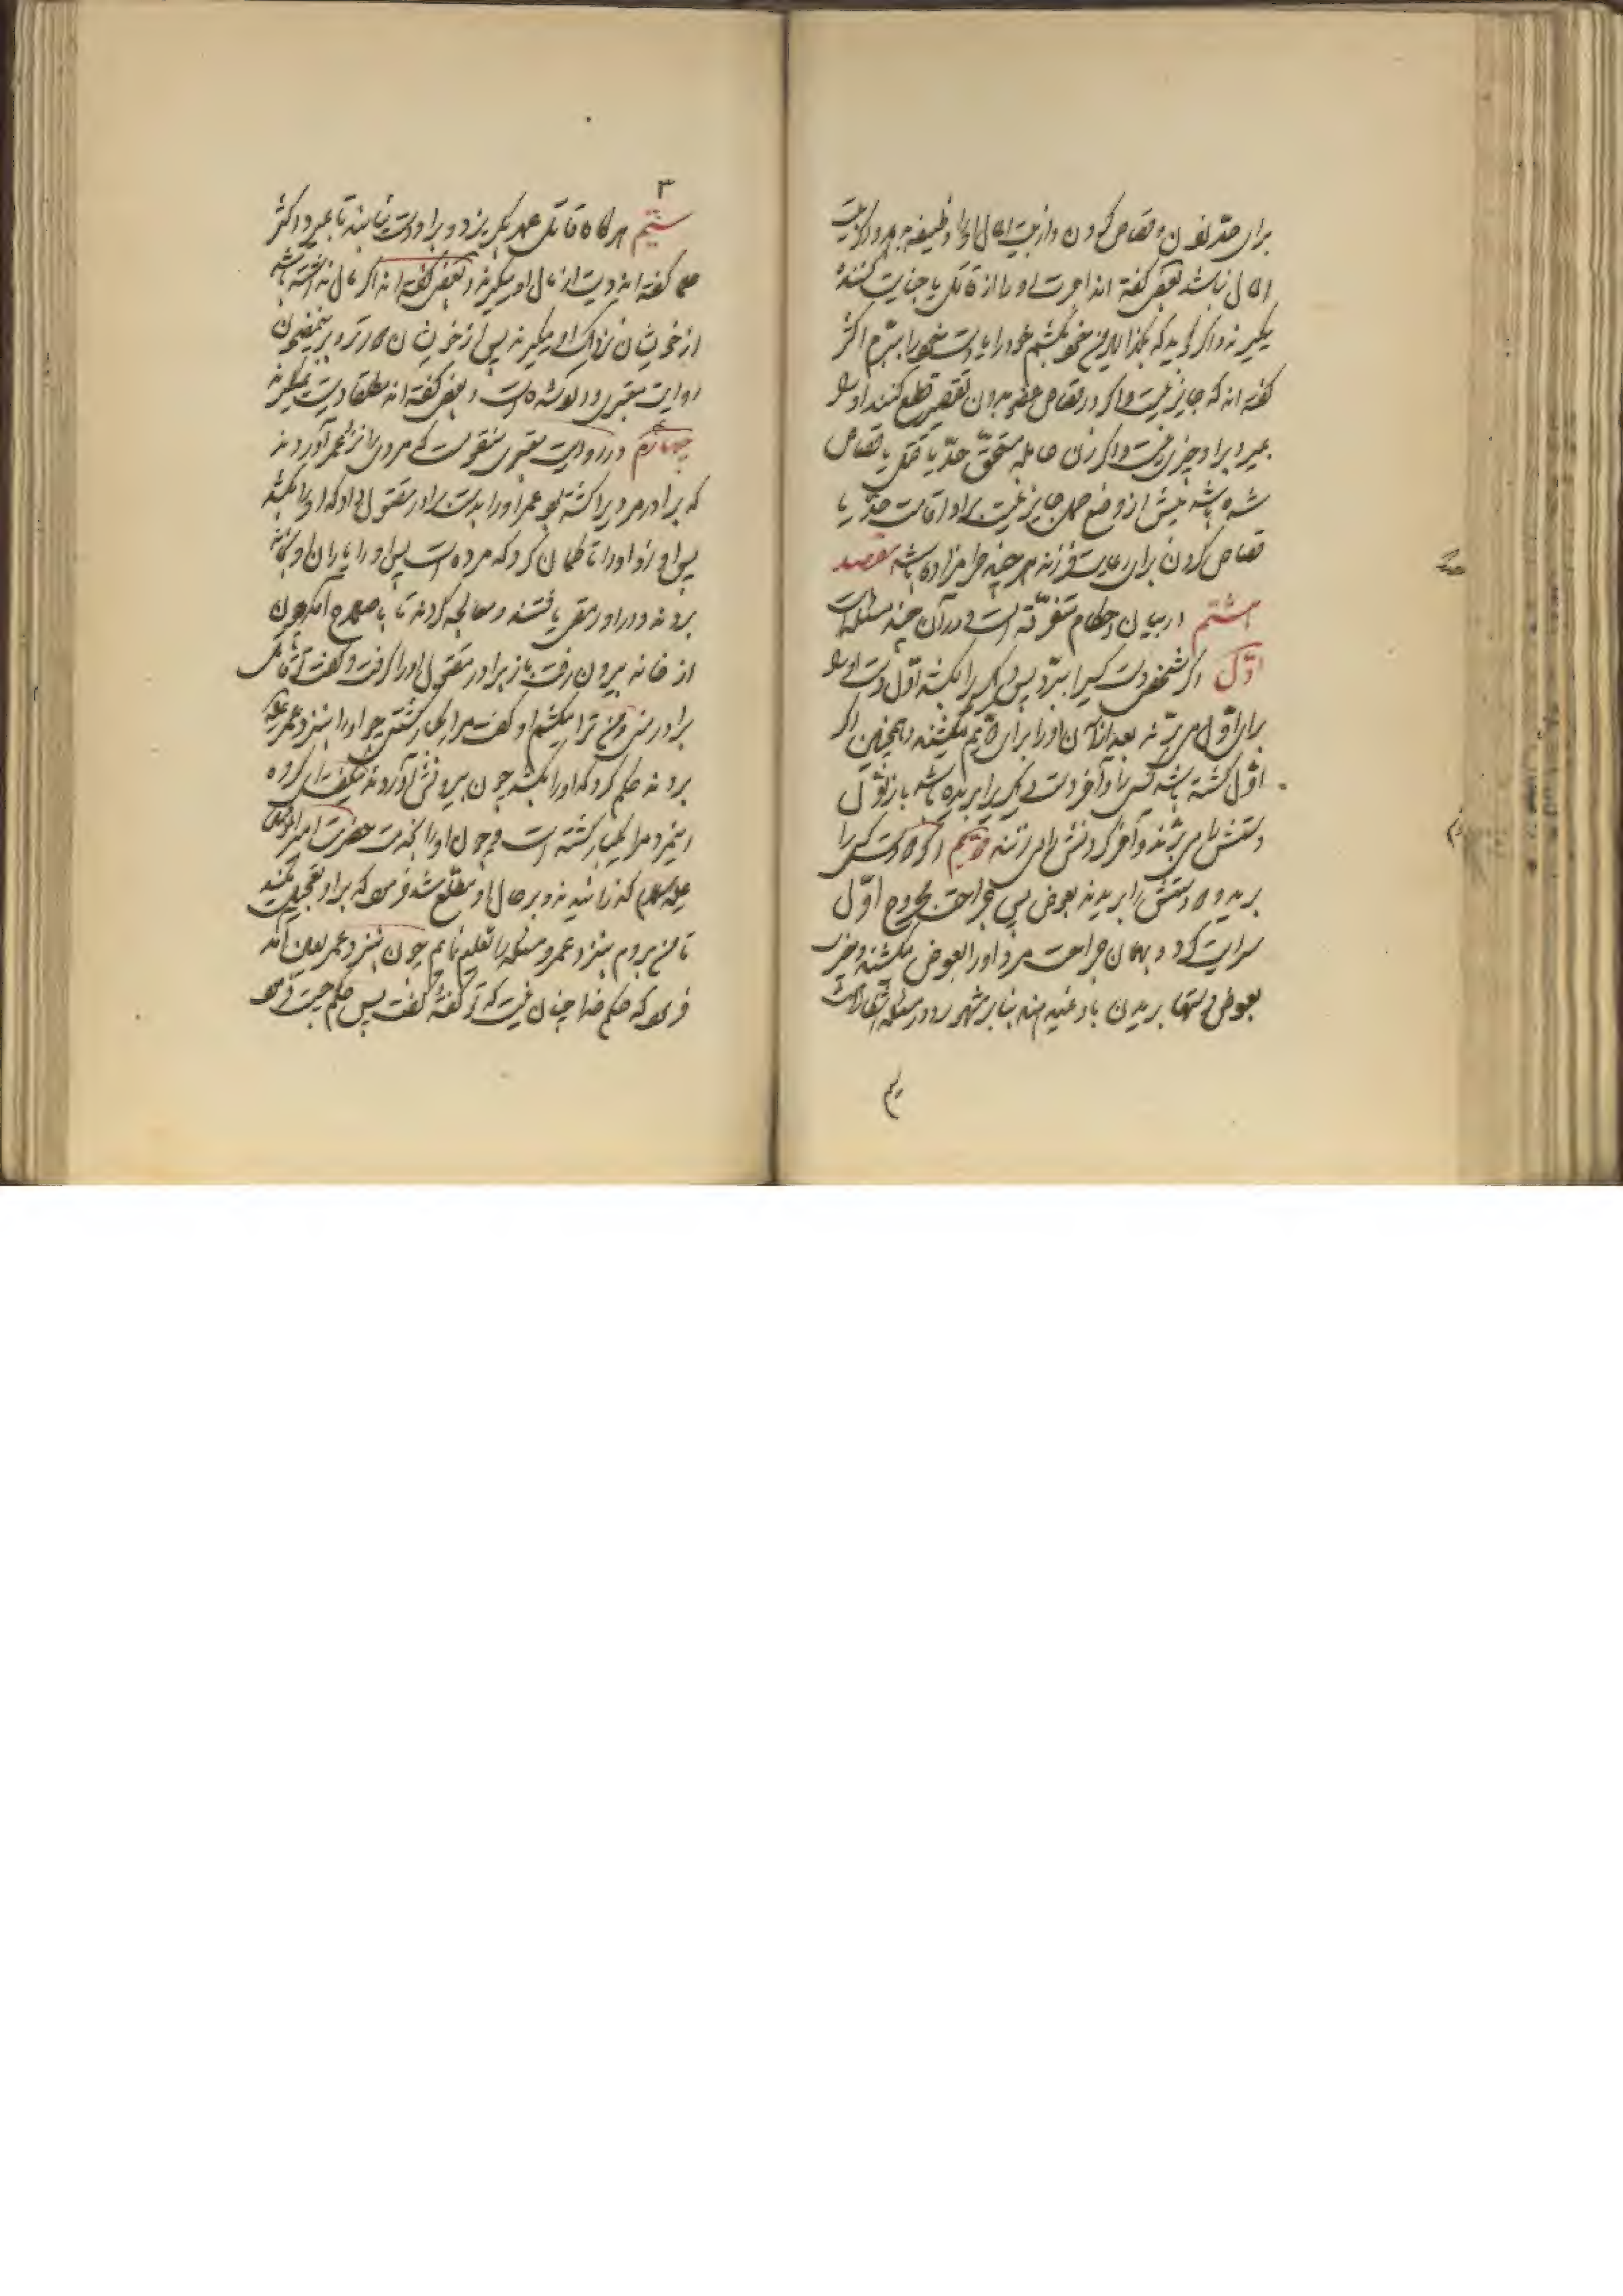 برای حدّ زدن و قصاص کردن و از بیت المال او را وظیفه بدهد و اگر بیت
المال نباشد بعضی گفته اند اجرت او را از قاتل یا جنایت کننده
میگیرند و اگر گوید که بگذارید من خود بکشم خود را یا دست خود را ببرم اکثر
گفته اند که جایز نیست و اگر در قصاص عضو بدون تقصیر قطع کنند و او
بمیرد بر او چیزی نیست و اگر زن حامله مستحقّ حدّ یا قتل یا قصاص
شده باشد پیش از وضع حمل جایز نیست بر او اقامت حدّ یا
قصاص کردن برای رعایت فرزند هر چند حرامزاده باشد مقصد
هشتم در بیان احکام متفرّقه است و در آن چند مسئله است
اوّل اگر شخصی دست کسی را ببرد پس دیگری را بکشد اوّل دست او را
برای اوّل می برند بعد از آن او را برای دویّم میکشند و همچنین اگر
اوّل کشته باشد کسی را و آخر دست دیگری را بریده باشد باز اوّل
دستش را می برند و آخر گردنش را می زنند دویّم اگر دست کسی را
برید و دستش را بریدند بعوض پس جراحت مجروح اوّل
سرایت کرد و بهمان جراحت مرد او را بعوض میکشند و
بعوض دستها بریدن باو نمیدهند بنابر مشهور و در مسئله اشکال است
سیّم
سیّم هرگاه قاتل عمد بگریزد و بر او دست نیابند تا بمیرد اکثر
علما گفته اند دیت از مال او میگیرند و بعضی گفته اند اگر مال نداشته باشد
از خویشان نزدیک او میگیرند پس از خویشان دورتر و بر این مضمون
روایت معتبری وارد شده است و بعضی گفته اند مطلقا دیت نمیگیرند
چهارم در روایت معتبری منقولست که مردی را نزد عمر آوردند
که برادر مردیرا کشته بود عمر او را بدست برادر مقتول داد که او را بکشد
پس او زد او را تا گمان کرد که مرده است پس او را یاران او بخانه
بردند و در او رمقی یافتند و معالجه کردند تا باصلاح آمد چون
از خانه بیرون رفت باز برادر مقتول او را گرفت و گفت تو قاتل
برادر منی و من ترا میکشم او گفت مرا یکبار کشتی چرا او را بنزد عمر
بردند حکم کرد که او را بکشد چون بیرونش آوردند میگفت ای گروه
این مرد مرا یکبار کشته است و چون او را بخدمت حضرت امیر المؤمنین
علیه السلام گذرانیدند و بر حال او مطلع شد فرمود که بر او تعجیل مکنید
تا من بروم بنزد عمر و مسئله را تعلیم نمایم چون بنزد عمر آمد
فرمود که حکم خدا چنان نیست که تو گفته گفت پس حکم چیست فرمود